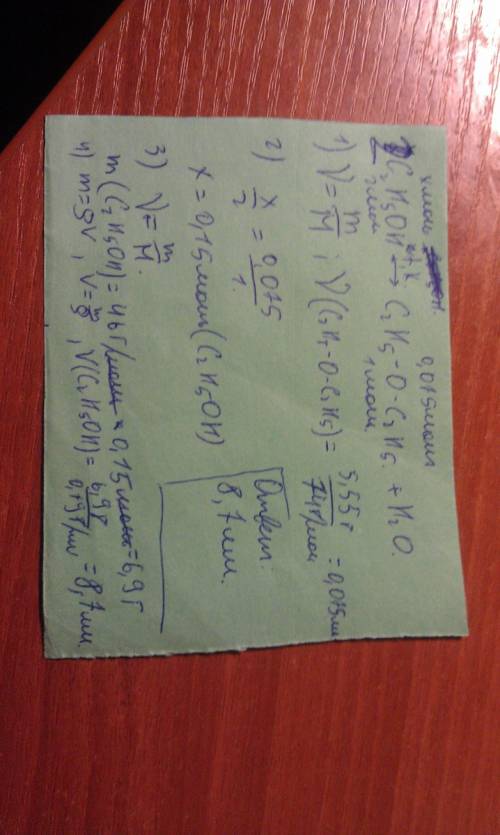 x моль 0,075 моль
2C₂H₅OH → C₂H₅-O-C₂H₅ + H₂O.
2 моль 1 моль
1) ν = m/M ; ν(C₂H₅-O-C₂H₅) = 5,55г/74г/моль = 0,075м
2) x/2 = 0,075/1.
x = 0,15 моль (C₂H₅OH)
Ответ:
8,7 мл.
3) ν = m/M.
m(C₂H₅OH) = 46г/моль × 0,15 моль = 6,9г
4) m=ρV, V=m/ρ, V(C₂H₅OH) = 6,9г/0,79г/мл = 8,7мл.